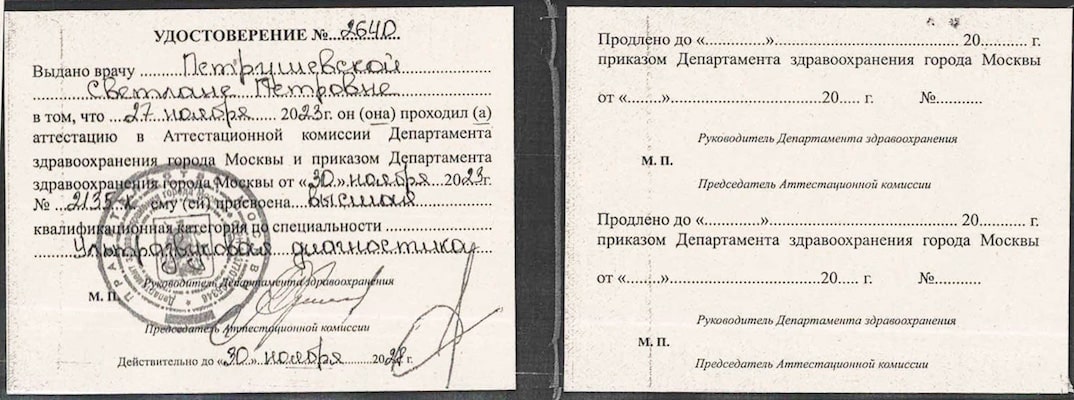 УДОСТОВЕРЕНИЕ № 2640
Выдано врачу Петрушевской
Светлане Петровне
в том, что 27 ноября 2023г. он (она) проходил (а)
аттестацию в Аттестационной комиссии Департамента
здравоохранения города Москвы и приказом Департамента
здравоохранения города Москвы от «30» ноября 2023г.
№ 2135-к ему (ей) присвоена высшая
квалификационная категория по специальности
Ультразвуковая диагностика
Руководитель Департамента здравоохранения
М. П.
Председатель Аттестационной комиссии
Действительно до «30» ноября 2028 г.
Продлено до «...............»........................................... 20........... г.
приказом Департамента здравоохранения города Москвы
от «........»....................................20..... г. №...........
Руководитель Департамента здравоохранения
М. П.
Председатель Аттестационной комиссии
Продлено до «..............»........................................... 20........... г.
приказом Департамента здравоохранения города Москвы
от «........»....................................20..... г. №...........
Руководитель Департамента здравоохранения
М. П.
Председатель Аттестационной комиссии